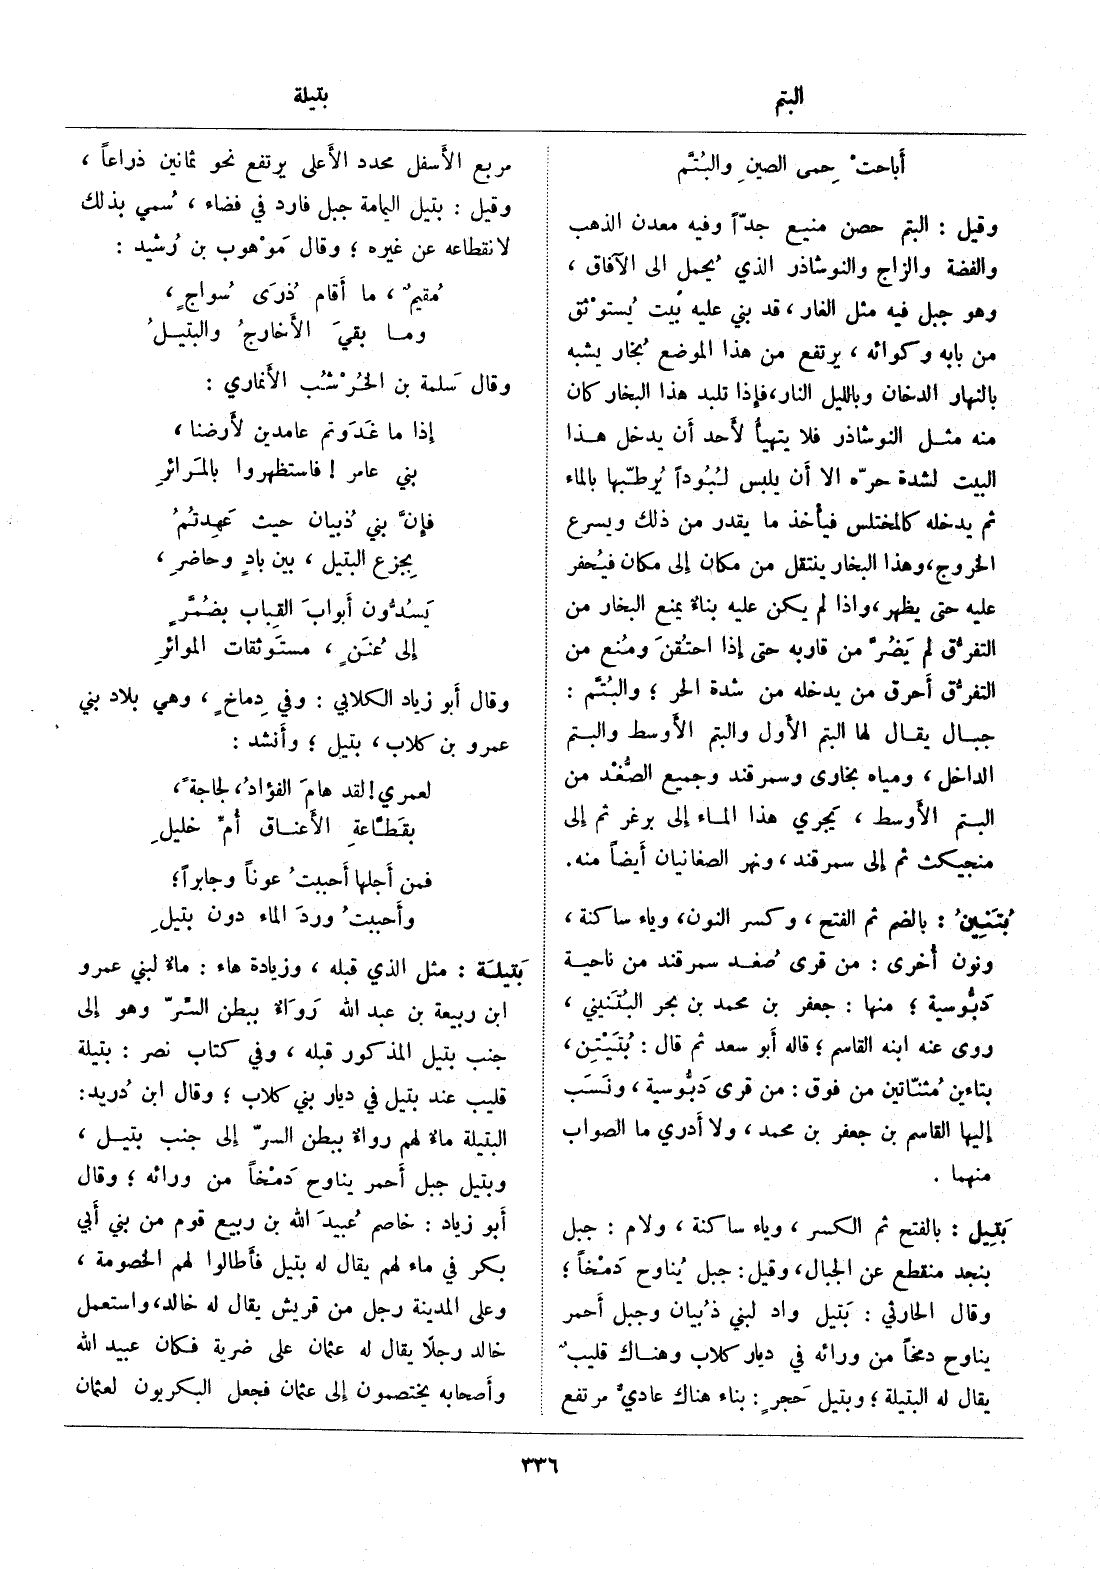 البتم
بتيلة
أباحتْ حِمى الصينِ والبُتَّم
وقيل : البتم حصن منيع جدّاً وفيه معدن الذهب
والفضة والزاج والنوشاذر الذي يُحمل الى الآفاق ،
وهو جبل فيه مثل الغار ، قد بني عليه بيت يُستوْثق
من بابه وكوائه ، يرتفع من هذا الموضع بُخار يشبه
بالنهار الدخان وبالليل النار ، فإذا تلبد هذا البخار كان
منه مثل النوشاذر فلا يتهيأ لأحد أن يدخل هذا
البيت لشدة حرّه الا أن يلبس لُبُوداً يُرطّبها بالماء
ثم يدخله كالمختلس فيأخذ ما يقدر من ذلك ويسرع
الخروج ، وهذا البخار ينتقل من مكان إلى مكان فيُحفر
عليه حتى يظهر ، واذا لم يكن عليه بناءٌ يمنع البخار من
التفرُّق لم يَضُرَّ من قاربه حتى إذا احتُقنَ ومُنع من
التفرُّق أَحرق من يدخله من شدة الحر ؛ والبُتَّم :
جبال يقال لها البتم الأول والبتم الأوسط والبتم
الداخل ، ومياه بخارى وسمرقند وجميع الصُّغْد من
البتم الأوسط ، يَجري هذا الماء إلى برغر ثم إلى
منجيكث ثم إلى سمرقند ، ونهر الصغانيان أيضاً منه .
بُتَنِينُ : بالضم ثم الفتح ، وكسر النون ، وياء ساكنة ،
ونون أُخرى : من قرى صُغد سمرقند من ناحية
دَبُّوسية ؛ منها : جعفر بن محمد بن بحر البُتَنيني ،
روى عنه ابنه القاسم ؛ قاله أبو سعد ثم قال : بُتَيْتِن ،
بتاءين مُثنّاتين من فوق : من قرى دَبُّوسية ، ونَسَب
إليها القاسم بن جعفر بن محمد ، ولا أدري ما الصواب
منهما .
بَتِيل : بالفتح ثم الكسر ، وياء ساكنة ، ولام : جبل
بنجد منقطع عن الجبال ، وقيل : جبل يُناوح دَمْخاً ؛
وقال الحارثي : بَتيل واد لبني ذُبيان وجبل أحمر
يناوح دمخاً من ورائه في ديار كلاب وهناك قليبٌ
يقال له البتيلة ؛ وبتيل حَجرٍ : بناء هناك عاديٌّ مرتفع
مربع الأَسفل محدد الأَعلى يرتفع نحو ثمانين ذراعاً ،
وقيل : بتيل اليمامة جبل فارد في فضاء ، سُمي بذلك
لانقطاعه عن غيره ؛ وقال مَوْهوب بن رُشيد :
مُقيمٌ ، ما أَقام ذُرَى سُواجٍ ،
وما بقيَ الأَخارجُ والبتيلُ
وقال سَلمة بن الخُرْشُب الأَنماري :
إذا ما غَدَوتم عامدين لأَرضنا ،
بني عامر ! فاستظهروا بالمَرائرِ
فإنَّ بني ذُبيان حيث عَهِدتُمُ
بِجزع البتيل ، بين بادٍ وحاضرِ ،
يَسُدُّون أبوابَ القِبابِ بضُمَّرٍ
إلى عُنَنٍ ، مستَوثقات الموائرِ
وقال أبو زياد الكلابي : وفي دِماخٍ ، وهي بلاد بني
عمرو بن كلاب ، بتيل ؛ وأَنشد :
لعمري ! لقد هامَ الفؤادُ ، لجاجةً ،
بقَطَّاعةِ الأَعناق أُمّ خليلِ
فمن أجلها أَحببتُ عوناً وجابراً ؛
وأَحببتُ وردَ الماء دون بتيلِ
بَتيلَة : مثل الذي قبله ، وزيادة هاء : ماءٌ لبني عمرو
ابن ربيعة بن عبد الله رَوَاءٌ ببطن السُّرّ وهو إلى
جنب بتيل المذكور قبله ، وفي كتاب نصر : بتيلة
قليب عند بتيل في ديار بني كلاب ؛ وقال ابن دُريد :
البتيلة ماءٌ لهم رواءٌ ببطن السرّ إلى جنب بتيل ،
وبتيل جبل أَحمر يناوح دَمْخاً من ورائه ؛ وقال
أبو زياد : خاصم عُبيدَ الله بن ربيع قوم من بني أبي
بكر في ماء لهم يقال له بتيل فأَطالوا لهم الخصومة ،
وعلى المدينة رجل من قريش يقال له خالد ، واستعمل
خالد رجلًا يقال له عثمان على ضرية فكان عبيد الله
وأصحابه يختصمون إلى عثمان فجعل البكريون لعثمان
٣٣٦